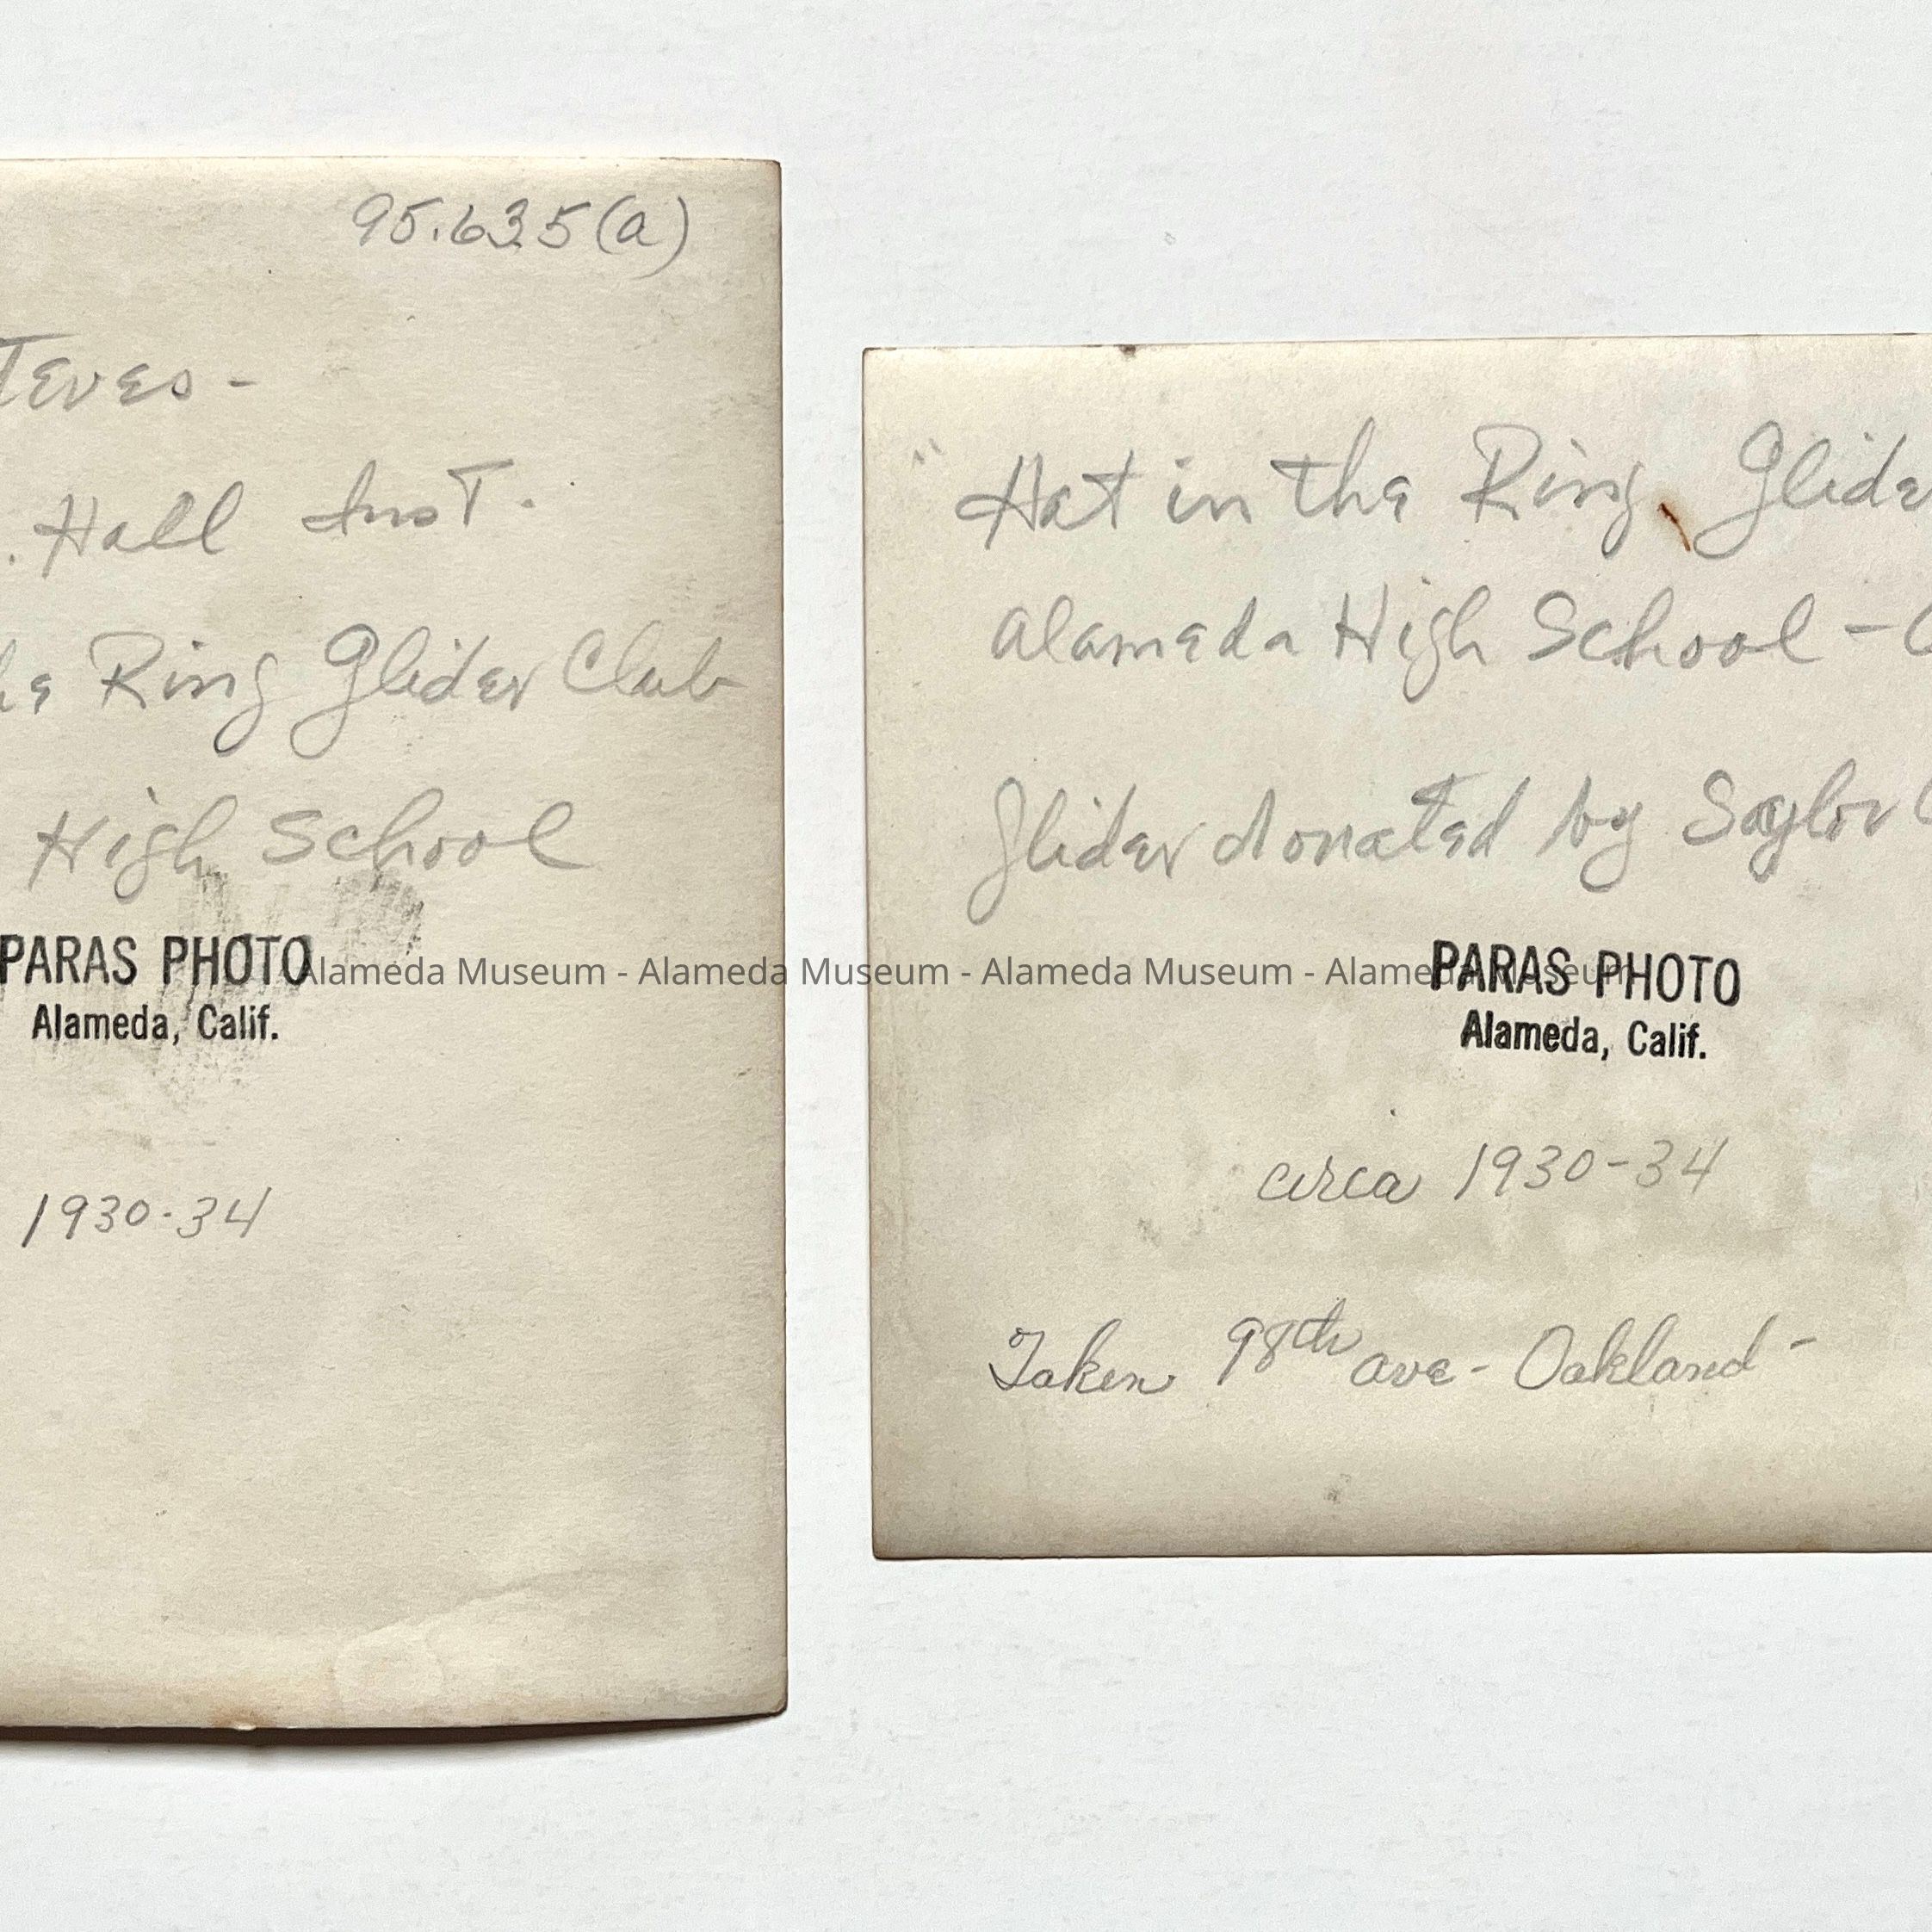 95.635(a)
Teves -
. Hall Inst.
he Ring Glider Club
High School
PARAS PHOTO
Alameda, Calif.
1930-34
" Hat in the Ring Glide
Alameda High School - C
Glider donated by Saylor
PARAS PHOTO
Alameda, Calif.
circa 1930-34
Taken 98th ave - Oakland -
Alameda Museum - Alameda Museum - Alameda Museum - Alameda Museum